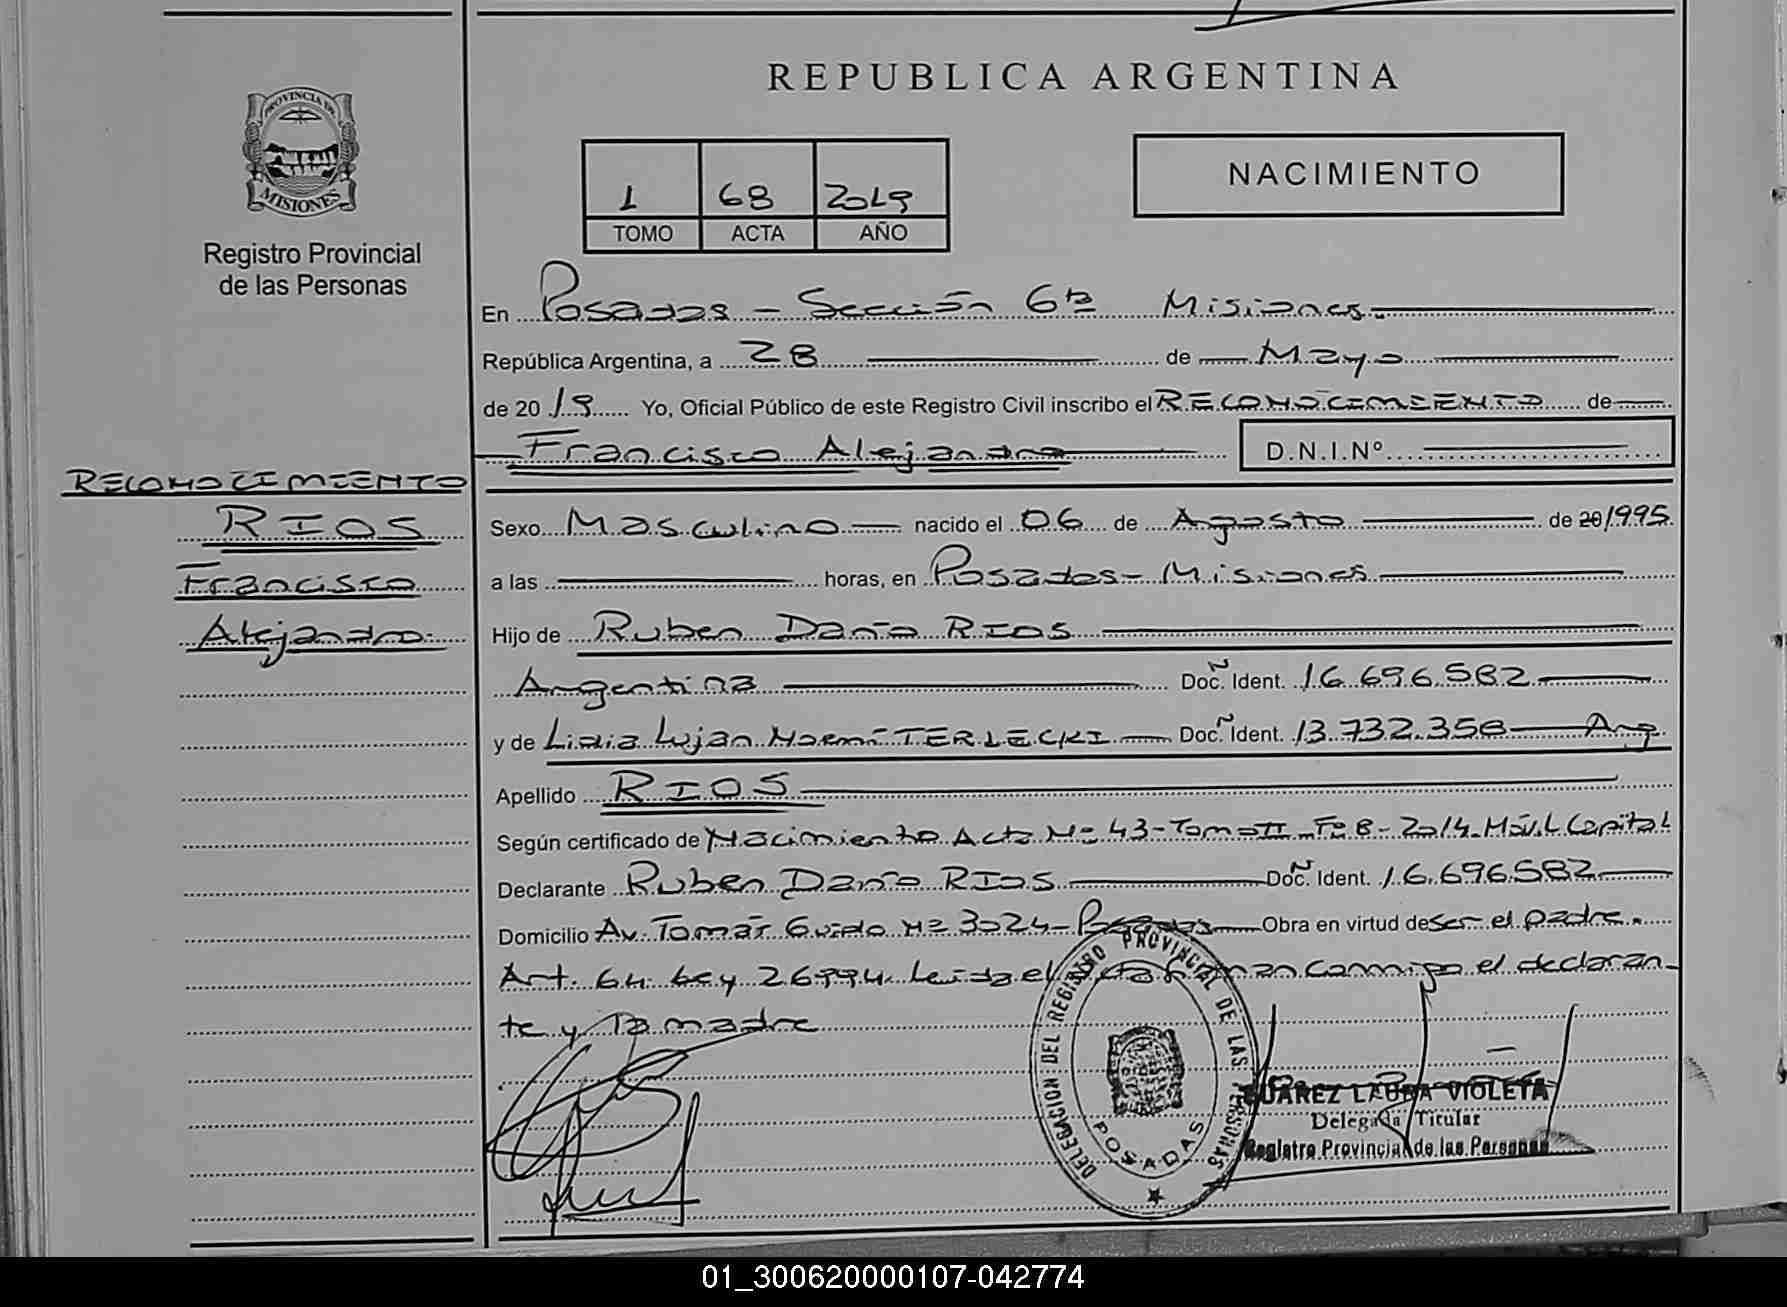 REPUBLICA ARGENTINA
PROVINCIA DE
MISIONES
Registro Provincial
de las Personas
1 68 2019
TOMO ACTA AÑO
NACIMIENTO
En Posadas - Sección 6ta Misiones.
República Argentina, a 28 de Mayo
de 20 19 Yo, Oficial Público de este Registro Civil inscribo el RECONOCIMIENTO de
Francisco Alejandro D.N.I.Nº
RECONOCIMIENTO
RIOS
Francisco
Alejandro
Sexo Masculino nacido el 06 de Agosto de 20 1995
a las horas, en Posadas - Misiones
Hijo de Ruben Darío RIOS
Argentina Doc. Ident. 16.696.582
y de Lidia Lujan Noemí TERLECKI Doc. Ident. 13.732.358 Arg.
Apellido RIOS
Según certificado de Nacimiento Acta Nº 43 - Tomo II Fº 8 - 2014 Móvil Capital
Declarante Ruben Darío RIOS Doc. Ident. 16.696.582
Domicilio Av. Tomás Guido Nº 3024 - Posadas Obra en virtud de ser el padre.
Art. 64 Ley 26994. Leida el acta firman conmigo el declaran-
te y la madre
DELEGACION DEL REGISTRO PROVINCIAL DE LAS PERSONAS
POSADAS
SUAREZ LAURA VIOLETA
Delegada Titular
Registro Provincial de las Personas
01_300620000107-042774